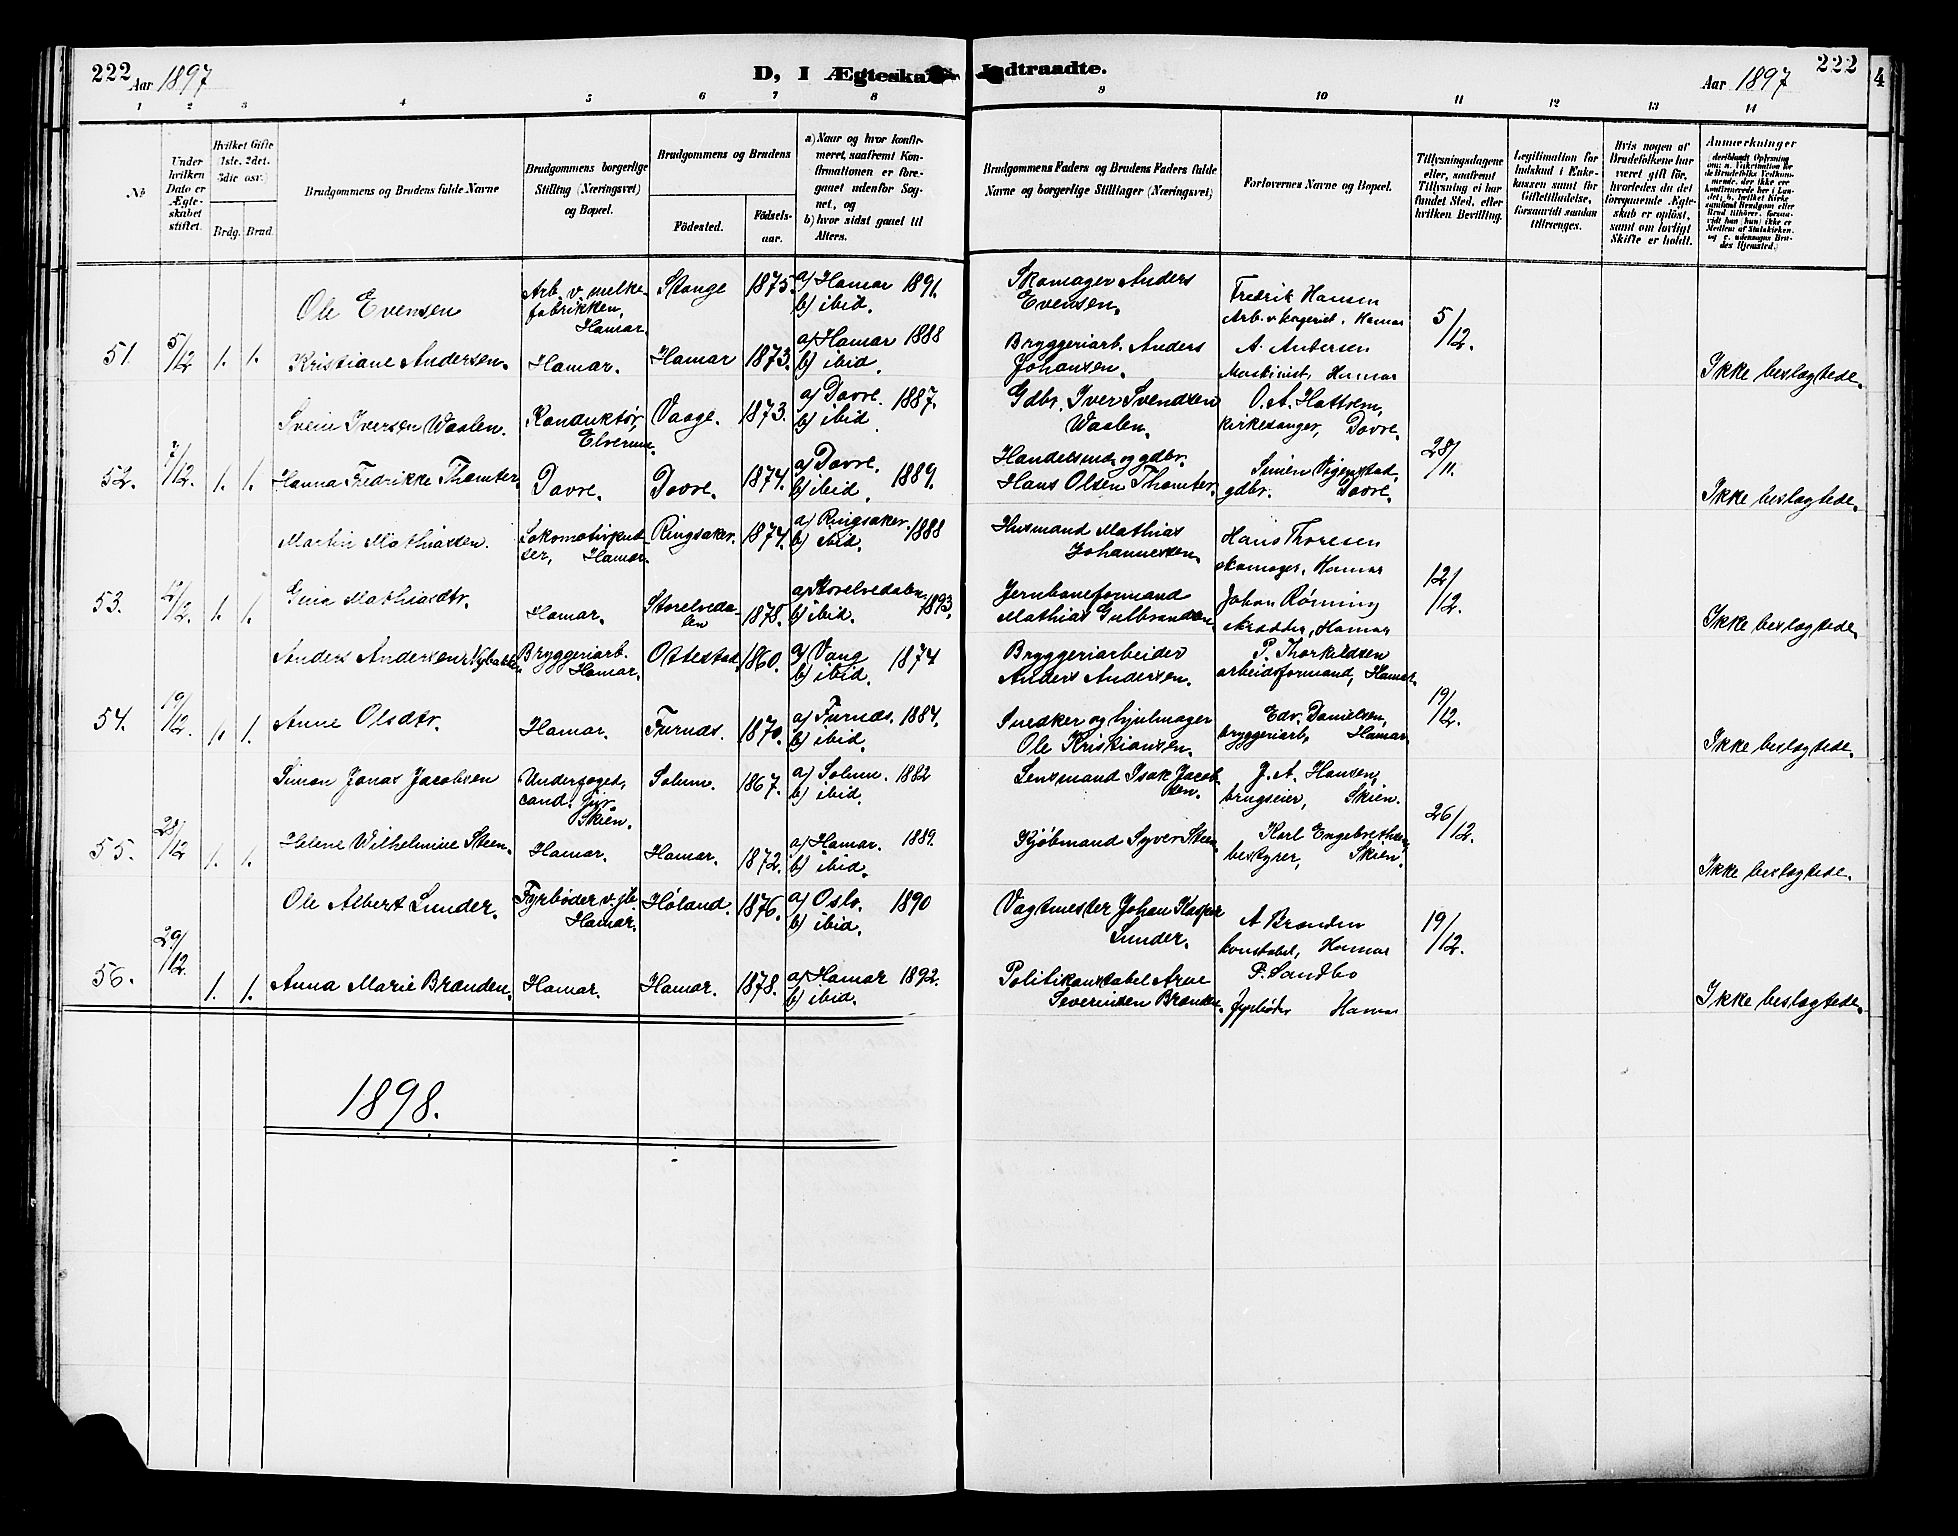 222 Aar 1897
D, I Ægteska
Indtraadte.
Aar 1897 222
4
1 2 3 4 5 6 7 8 9 10 11 12 13 14
No
Under hvilken Dato er Ægteskabet stiftet.
Hvilket Gifte 1ste. 2det. 3die osv.)
Brdg. Brud.
Brudgommens og Brudens fulde Navne
Brudgommens borgerlige Stilling (Næringsvei) og Bopæl.
Brudgommens og Brudens
Födested. Födselsaar.
a) Naar og hvor konfirmeret, saafremt Konfirmationen er foregaaet udenfor Sognet, og b) hvor sidst gaaet til Alters.
Brudgommens Faders og Brudens Faders fulde Navne og borgerlige Stillinger (Næringsvei)
Forlovernes Navne og Bopæl.
Tillysningsdagene eller, saafremt Tillysning ei har fundet Sted, efter hvilken Bevilling.
Legitimation for Indskud i Enkekassen samt for Giftetilladelse, forsaavidt saadan tiltrænges.
Hvis nogen af Brudefolkene har været gift før, hvorledes da det foregaaende Ægteskab er oplöst, samt om lovligt Skifte er holdt.
Anmærkninger
Ole Evensen Arb. v. melkefabrikken, Hamar. Stange 1875. a) Hamar 1891. b) ibid. Skomager Anders Evensen. Fredrik Hansen Arb. v. , Hamar 5/12.
51. 5/12 1. 1. Kristiane Andersen. Hamar. Hamar 1873. a) Hamar 1888 b) ibid. Bryggeriarb. Anders Johansen. A. Andersen Maskinist, Hamar Ikke beslægtede.
Svein Iversen Waalen. Konduktör, Elverum. Vaage. 1873. a) Dovre. 1887. b) ibid. Gdbr. Iver Svendsen Waalen. O. A. Hattrem, kirkesanger, Dovre. 28/11.
52. 7/12. 1. 1. Hanna Fredrikke Thomter. Dovre. Dovre. 1874. a) Dovre. 1889. b) ibid. Handelsmd. og gdbr. Hans Olsen Thomter. gdbr. Dovre. Ikke beslægtede.
Martin Mathiassen. Lokomotivpudser, Hamar. Ringsaker. 1874. a) Ringsaker. 1888 b) ibid. Husmand Mathias Johannessen. Hans Thoresen skomager, Hamar 12/12.
53. /12. 1. 1. Gina Mathiasdtr. Hamar. Storelvedalen 1878. a) Storelvedalen 1893. b) ibid. Jernbaneformand Mathias Gulbrandsen. Johan Rønning skrædder, Hamar Ikke beslægtede.
Anders Andersen Nybakken. Bryggeriarb. Hamar. Ottestad. 1860. a) Vang 1874 b) ibid. Bryggeriarbeider Anders Andersen. P. Thorkildsen arbeidsformand, Hamar. 19/12.
54. 19/12. 1. 1. Anne Olsdtr. Hamar. Furnæs. 1870. a) Furnæs. 1884. b) ibid. Snedker og hjulmager Ole Kristiansen. Edv. Danielsen, bryggeriarb, Hamar. Ikke beslægtede.
Simon Jonas Jacobsen Underfoged, cand. jur. Skien. Solum. 1867. a) Solum. 1882 b) ibid. Lensmand Isak Jacobsen. J. A. Hansen, brugseier, Skien. 26/12.
55. 28/12 1. 1. Helene Wilhelmine Steen. Hamar. Hamar. 1872. a) Hamar. 1889. b) ibid. Kjøbmand Syver Steen. Karl Engebrethsen bestyrer, Skien. Ikke beslægtede.
Ole Albert Lunder. Fyrbøder v. jb. Hamar. Høland. 1876. a) Oslo. 1890 b) ibid. Vagtmester Johan Kasper Lunder. A Brænden konstabel, Hamar 19/12.
56. 29/12. 1. 1. Anna Marie Brænden. Hamar. Hamar. 1878. a) Hamar 1892. b) ibid. Politikonstabel Arne Severinsen Brænden. P. Sandbo fyrbøder Hamar Ikke beslægtede.
1898.